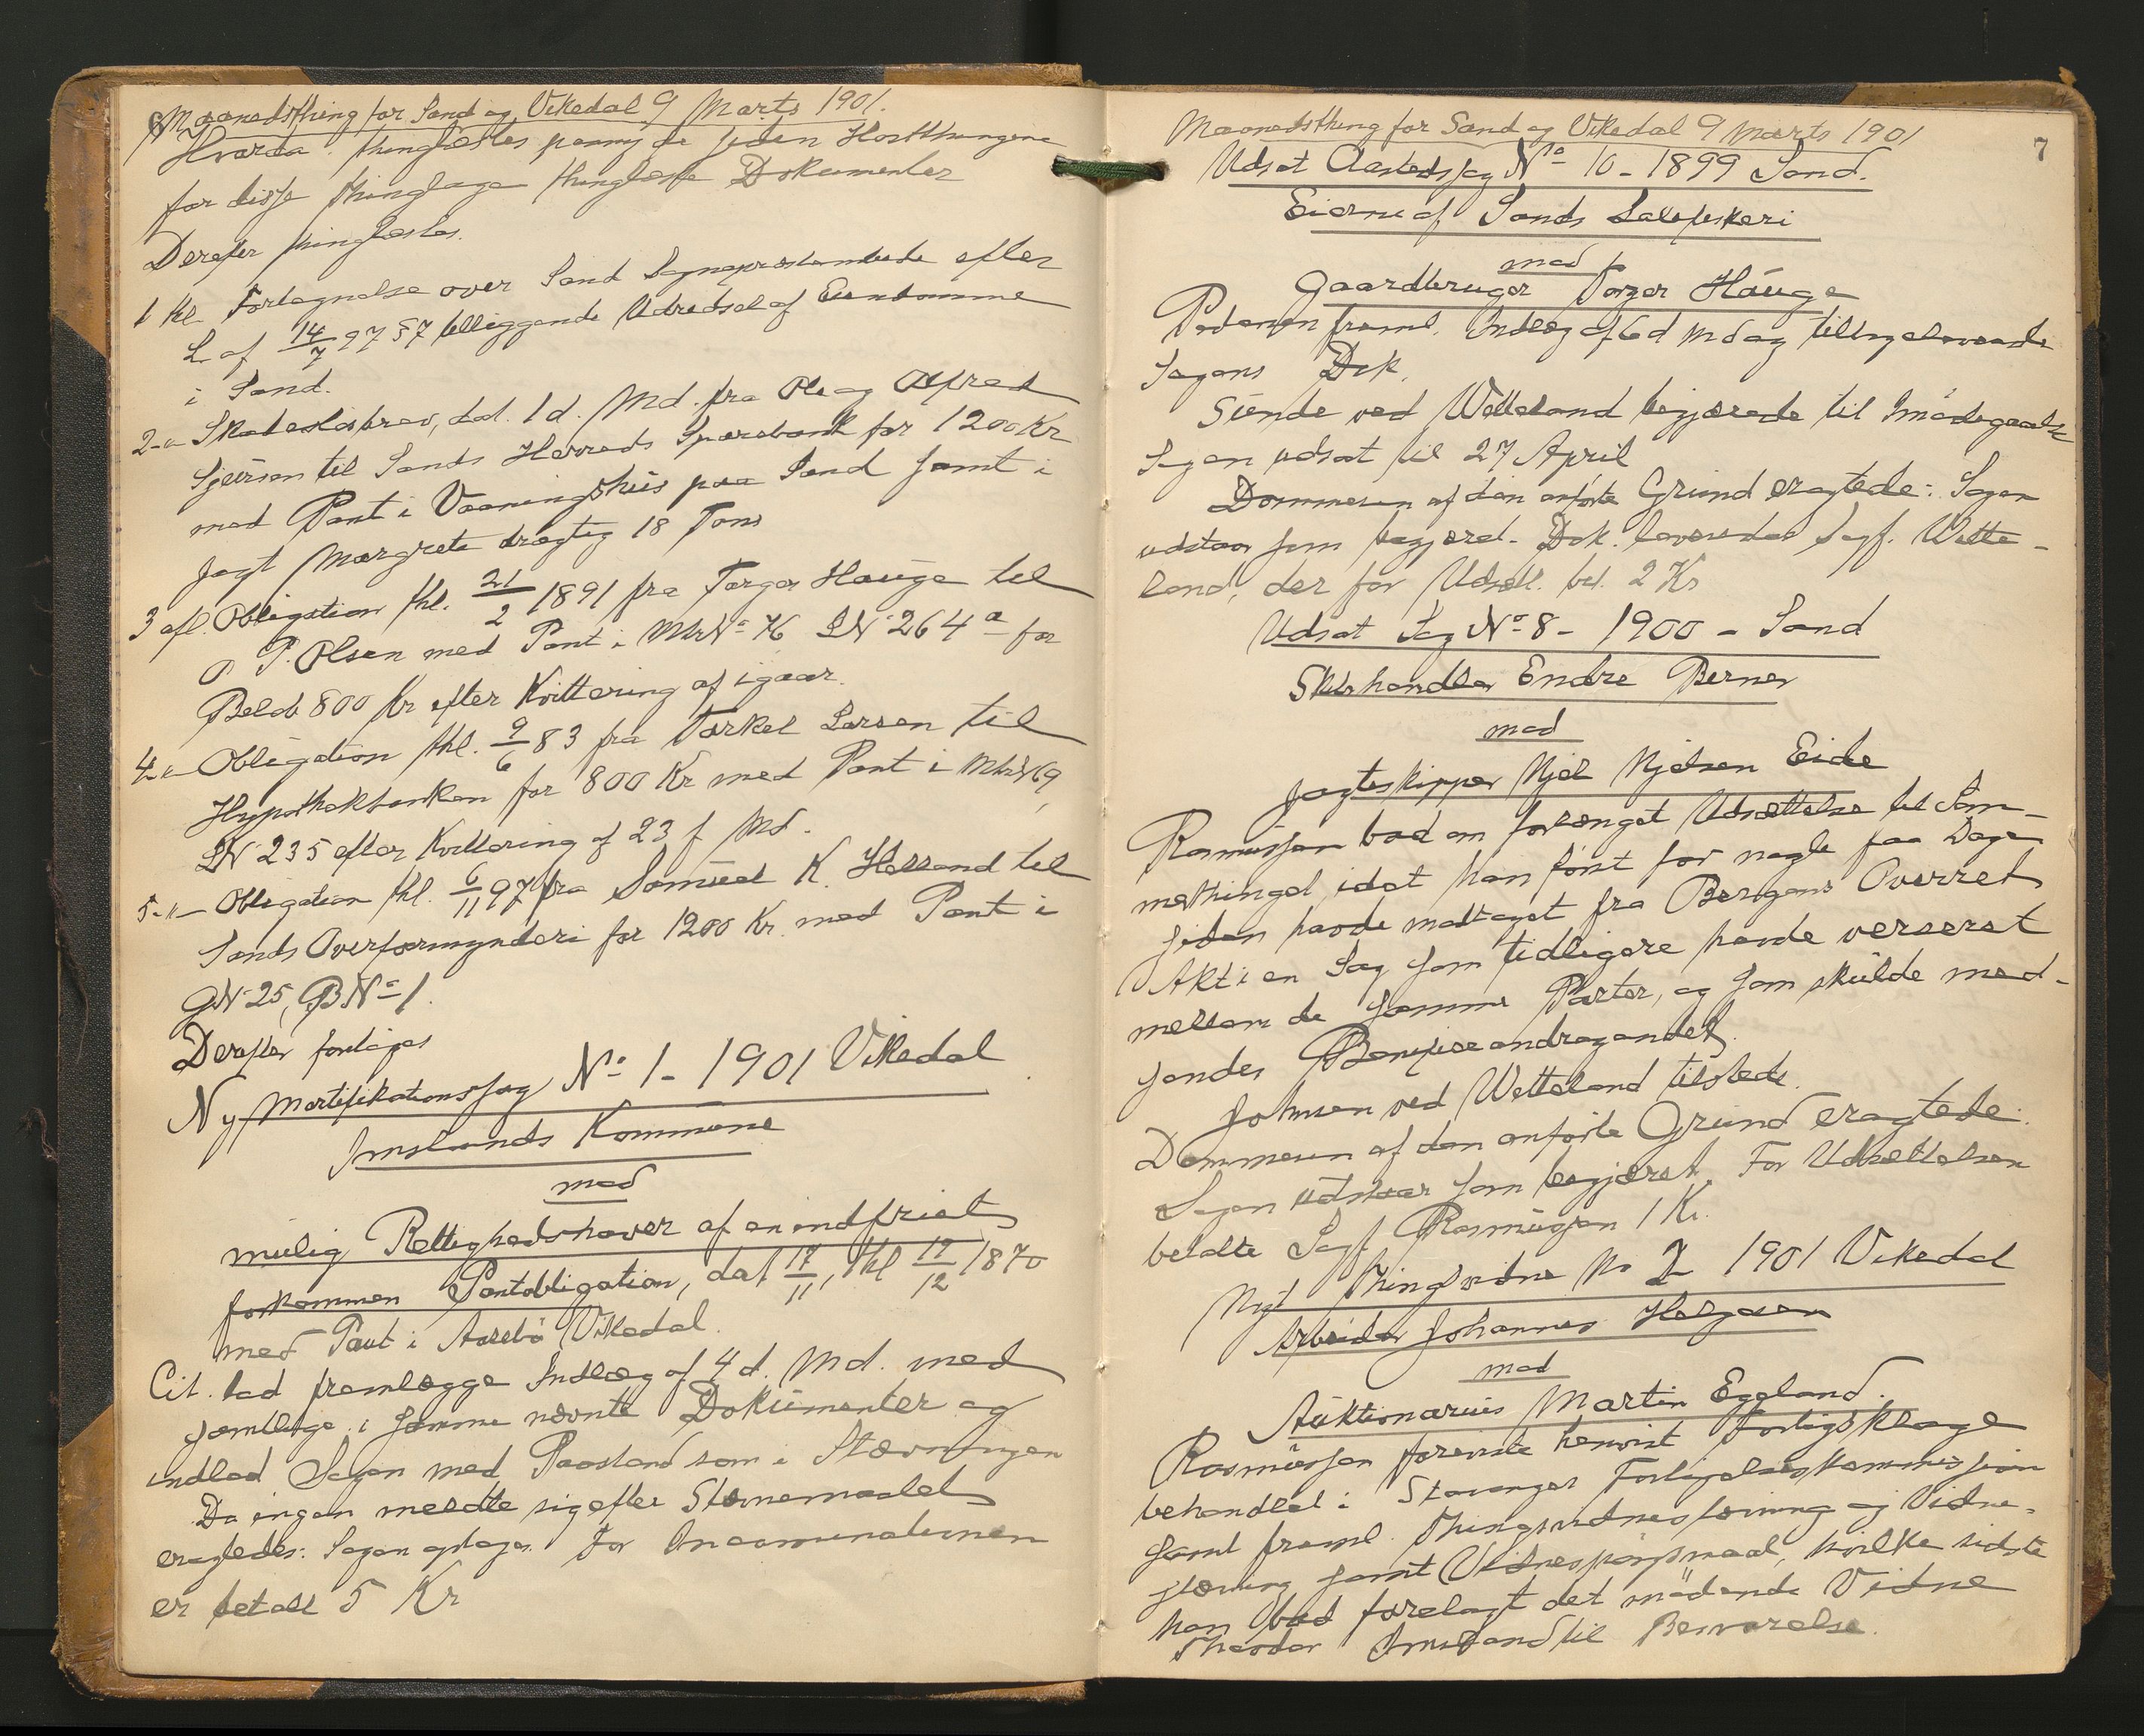 Maanedsthing for Sand og Vikedal 9 Marts 1901.
Hvorda thinglæstes paany de siden Hostthingene
for disse thinglage thinglæste Dokumenter
Derefter thinglæstes.
1 Kl Fortegnelse over Sand Sogneprestembede efter
L af 14/7 97 § 7 tilliggende Udredsel af Eiendomme
i Sand.
2-"- Skadesløsbrev, dat. 1 d. Md. fra Ole og Alfred
Sjursen til Sands Herreds Sparebank for 1200 Kr
med Pant i Vaaningshus paa Sand samt i
Jagt Margrete drægtig 18 Tons
3 afl. Obligation thl. 21/2 1891 fra Torger Hauge til
O P. Olsen med Pant i MtrNo 76 LN 264 a for
Beløb 800 Kr efter Kvittering af igaar.
4-"- Obligation thl. 9/6 83 fra Torkel Larsen til
Hypothekbanken for 800 Kr med Pant i MtrN 69,
LN 235 efter Kvittering af 23 f Md.
5-"- Obligation thl. 6/11 97 fra Samuel K. Helland til
Sands Overformynderi for 1200 Kr. med Pant i
GN 25, BNo 1.
Derefter foretages
Ny Mortifikationssag No 1 - 1901 Vikedal
Imslands Kommune
mod
mulig Rettighedshaver af en indfriet
forkommen Pantobligation, dat 17/11, thl 19/12 1870
med Pant i Aarebø Vikedal.
Cit. lod fremlægge Indlæg af 4 d. Md. med
samtlige i samme nævnte Dokumenter og
indlod Sagen med Paastand som i Stævningen
Da ingen meldte sig efter Stævnemaalet
eragtedes: Sagen optages. For Incaminationen
er betalt 5 Kr
Maanedsthing for Sand og Vikedal 9 Marts 1901
7
Udsat Aastedssag No 10 - 1899 Sand.
Eierne af Sands Laxefiskeri
mod
Gaardbruger Torger Hauge
Pedersen freml. Indlæg af 6 d Md og tilbageleverede
Sagens Dok.
Sunde ved Wetteland begjærede til Imødegaaelse
Sagen udsat til 27 April
Dommeren af den anførte Grund eragtede: Sagen
udstaar som begjært. Dok. leveredes Sagf. Wette-
land, der for Udsætt. bet. 2 Kr
Udsat Sag No 8 - 1900 - Sand
Endre Berner
mod
Jagteskipper Njel Njelsen Eide
Rasmussen bad om forlænget Udsættelse til Som-
merthinget, idet han først for nogle faa Dage
siden havde modtaget fra Bergens Overret
Akt i en Sag som tidligere havde verseret
mellem de samme Parter, og som skulde med-
sendes Bevisandragendet.
Johnsen ved Wetteland tilstede.
Dommeren af den anførte Grund eragtede:
Sagen udstaar som begjæret. For Udsættelsen
betalte Sagf Rasmussen 1 Kr.
Nyt Thingsvidne No 2 1901 Vikedal
Arbeider Johannes Helgesen
mod
Auktionarius Martin Egeland.
Rasmussen foreviste henvist Forligsklage
behandlet i Stavanger Forligelseskommission
samt freml. Thingsvidnestævning og Vidne-
stævning samt Vidnespørgsmaal, hvilke sidste
han bad forelagt det mødende Vidne
Theodor Imsland til Besvarelse.